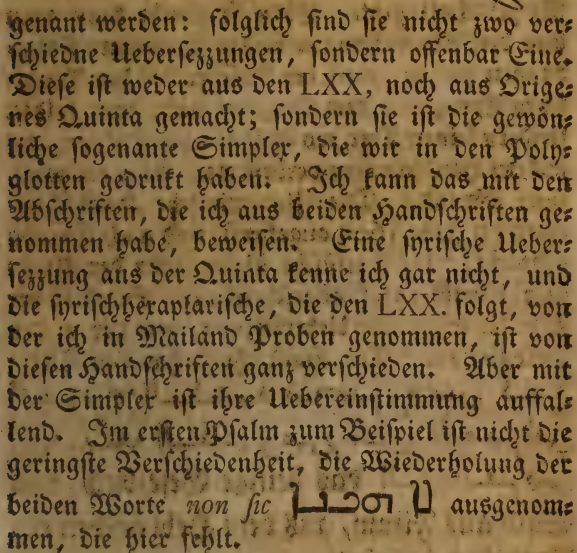 genant werden: folglich sind sie nicht zwo ver=
schiedne Uebersezzungen, sondern offenbar Eine.
Diese ist weder aus den LXX, noch aus Orige=
nes Quinta gemacht; sondern sie ist die gewön=
liche sogenante Simplex, die wir in den Poly=
glotten gedrukt haben. Ich kann das mit den
Abschriften, die ich aus beiden Handschriften ge=
nommen habe, beweisen. Eine syrische Ueber=
sezzung aus der Quinta kenne ich gar nicht, und
die syrischhexaplarische, die den LXX. folgt, von
der ich in Mailand Proben genommen, ist von
diesen Handschriften ganz verschieden. Aber mit
der Simplex ist ihre Uebereinstimmung auffal=
lend. Im ersten Psalm zum Beispiel ist nicht die
geringste Verschiedenheit, die Wiederholung der
beiden Worte non sic ܠܐ ܗܟܢܐ ausgenom=
men, die hier fehlt.